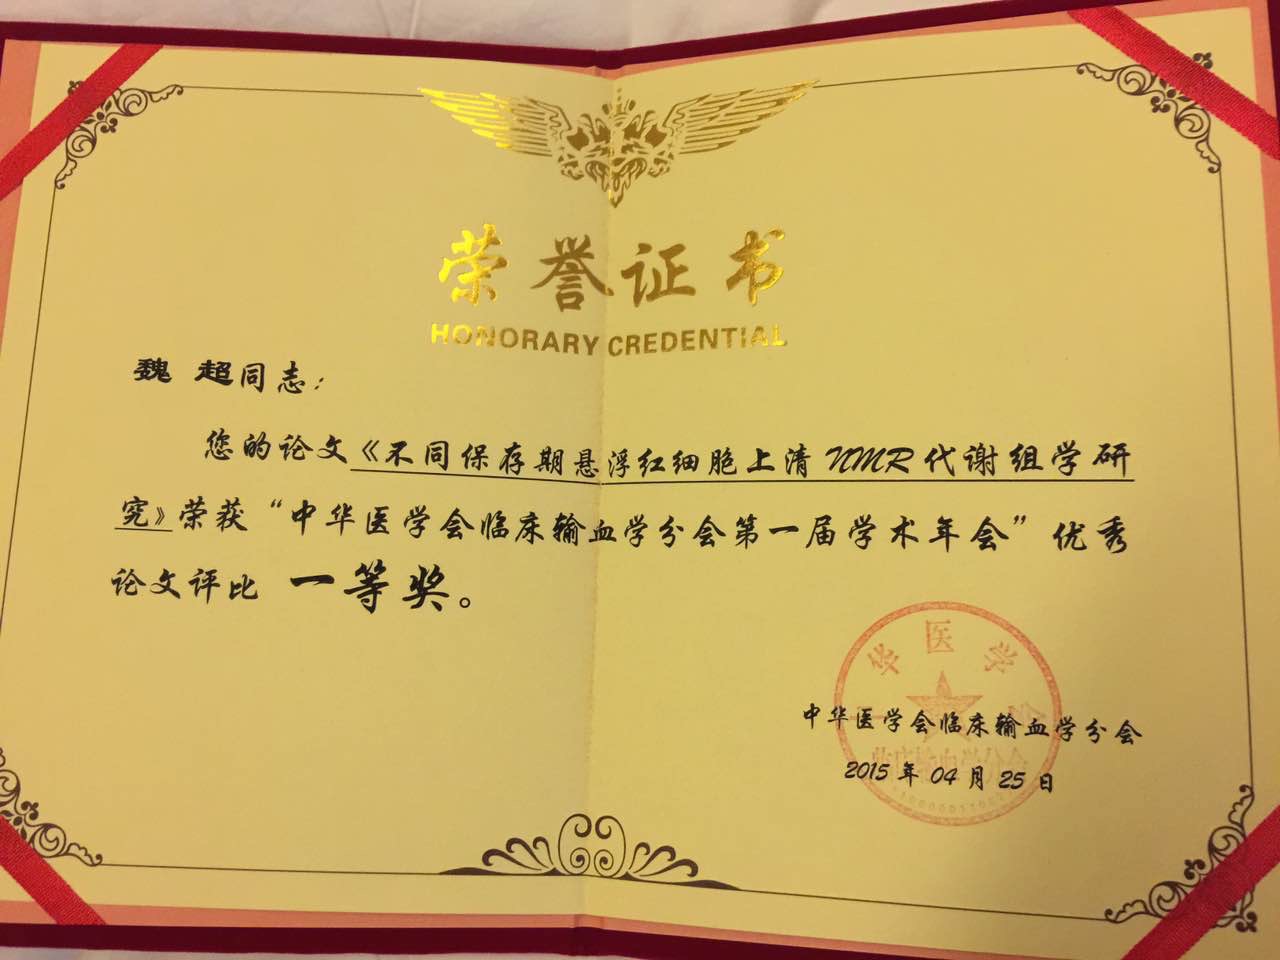 荣誉证书
HONORARY CREDENTIAL
魏 超同志：
您的论文《不同保存期悬浮红细胞上清NMR代谢组学研
究》荣获“中华医学会临床输血学分会第一届学术年会”优秀
论文评比 一等奖。
华医学
中华医学会临床输血学分会
2015年04月25日